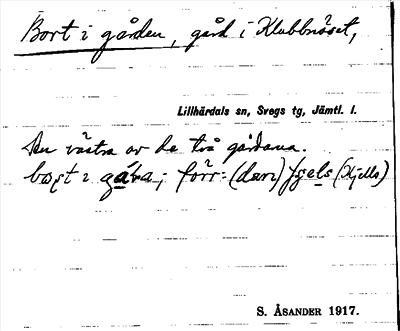 Bort i gården, gård i Klubbnäset,
Lillhärdals sn, Svegs tg, Jämtl. l.
Den västra av de två gårdarna.
bort i gára; förr: (den) fsels (Kjells)
S. ÅSANDER 1917.